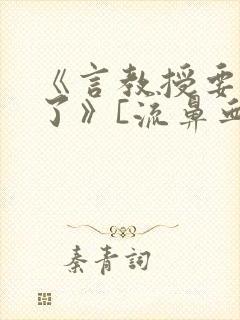 《言教授要
了》[流鼻血
秦青詞